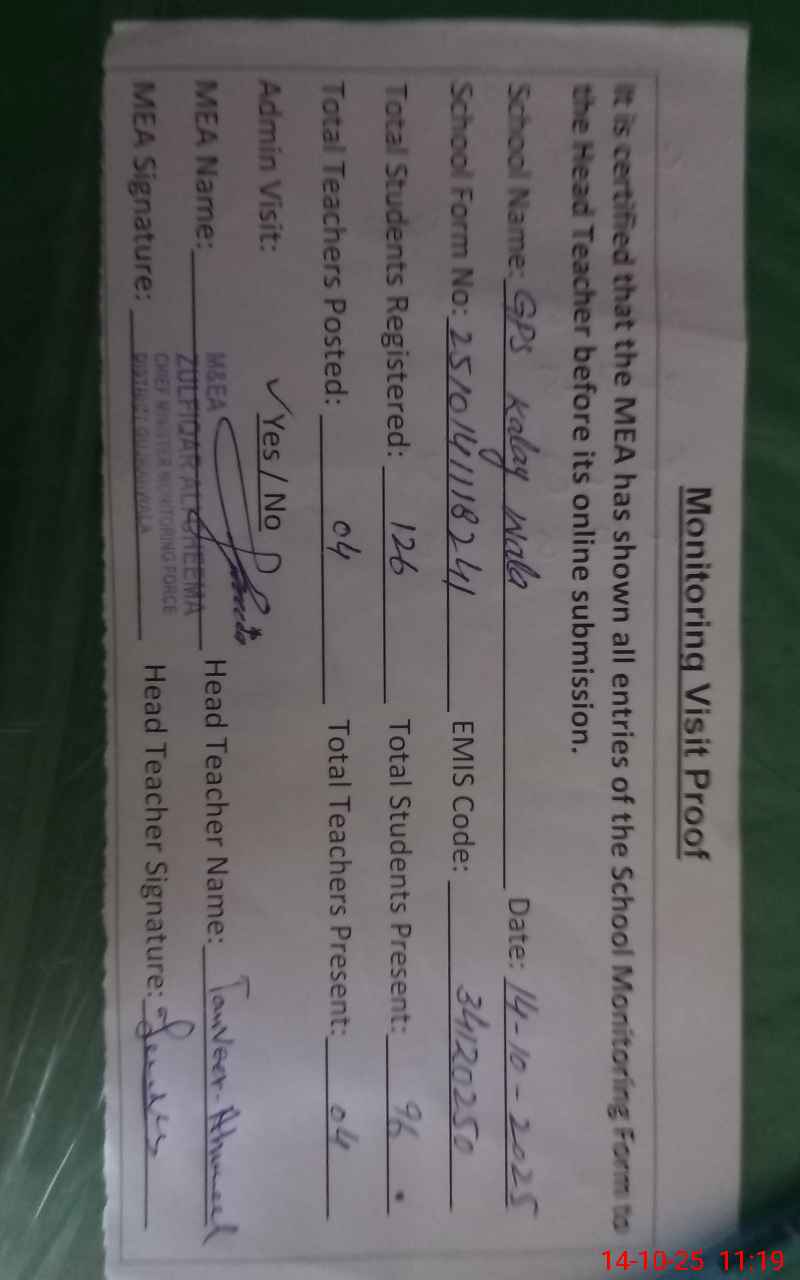 Monitoring Visit Proof
It is certified that the MEA has shown all entries of the School Monitoring Form to
the Head Teacher before its online submission.
School Name: GPS Kalay Wala Date: 14-10-2025
School Form No: 2510141118241 EMIS Code: 34120250
Total Students Registered: 126 Total Students Present: 96
Total Teachers Posted: 04 Total Teachers Present: 04
Admin Visit: ✓ Yes / No
MEA Name: Head Teacher Name: Tanveer Ahmed
MEA Signature: Head Teacher Signature:
M&EA
ZULFIQAR ALI CHEEMA
CHIEF MINISTER MONITORING FORCE
DISTRICT GUJRANWALA
14-10-25 11:19